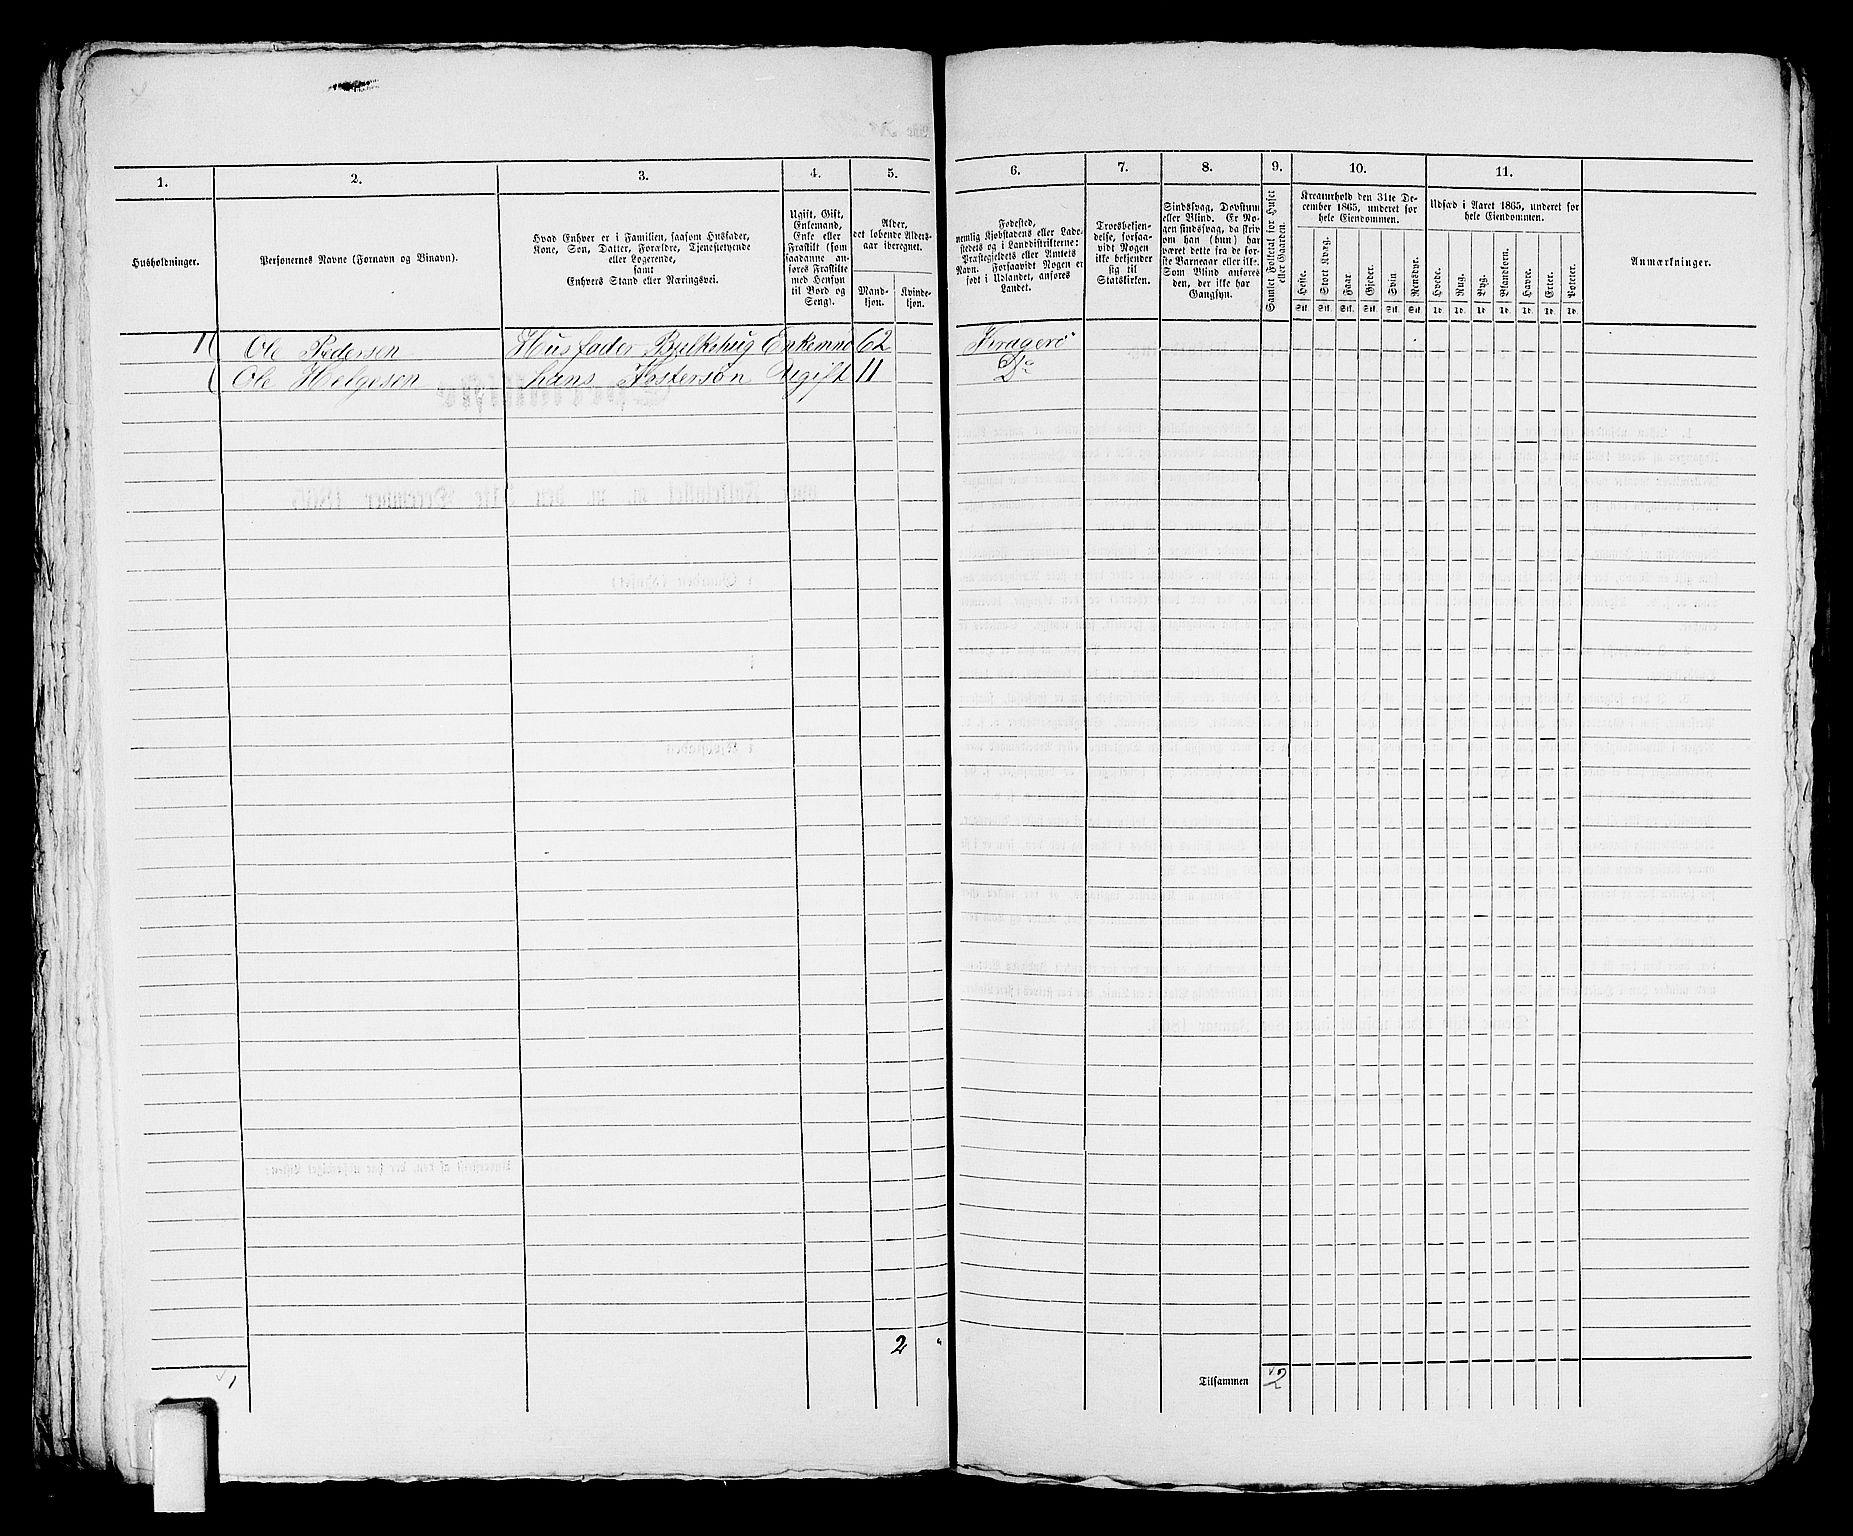 1. 2. 3. 4. 5. 6. 7. 8. 9. 10. 11.
Husholdninger.
Personernes Navne (Fornavn og Binavn).
Hvad Enhver er i Familien, saasom Husfader,
Kone, Søn, Datter, Forældre, Tjenestetyende
eller Logerende,
samt
Enhvers Stand eller Næringsvei.
Ugift, Gift,
Enkemand,
Enke eller
Fraskilt (som
saadanne an-
føres Fraskilte
med Hensyn
til Bord og
Seng).
Alder,
det løbende Alders-
aar iberegnet.
Mand-
kjøn.
Kvinde-
kjøn.
Fødested,
nemlig Kjøbstadens eller Lade-
stedets og i Landdistrikterne:
Præstegjeldets eller Amtets
Navn. Forsaavidt Nogen er
født i Udlandet, anføres
Landet.
Troesbekjen-
delse, forsaa-
vidt Nogen
ikke bekjender
sig til
Statskirken.
Sindssvag, Døvstum
eller Blind. Er No-
gen sindssvag, da skriv
om han (hun) har
været dette fra de før-
ste Barneaar eller ikke.
Som Blind anføres
den, der ikke har
Gangsyn.
Samlet Folketal for Huset
eller Gaarden.
Kreaturhold den 31te De-
cember 1865, underet for
hele Eiendommen.
Heste. Stort Kvæg. Faar Gjeder. Sviin Rensdyr.
Stk. Stk. Stk. Stk. Stk. Stk.
Udsæd i Aaret 1865, underet for
hele Eiendommen.
Hvede. Rug. Byg. Blandkorn. Havre. Erter. Poteter.
Td. Td. Td. Td. Td. Td. Td.
Anmærkninger.
Ole Pedersen Husfader Enkemnd 62 Kragerø
Ole Helgesen hans Fostersøn Ugift 11 Do
2 "
1 Tilsammen 2